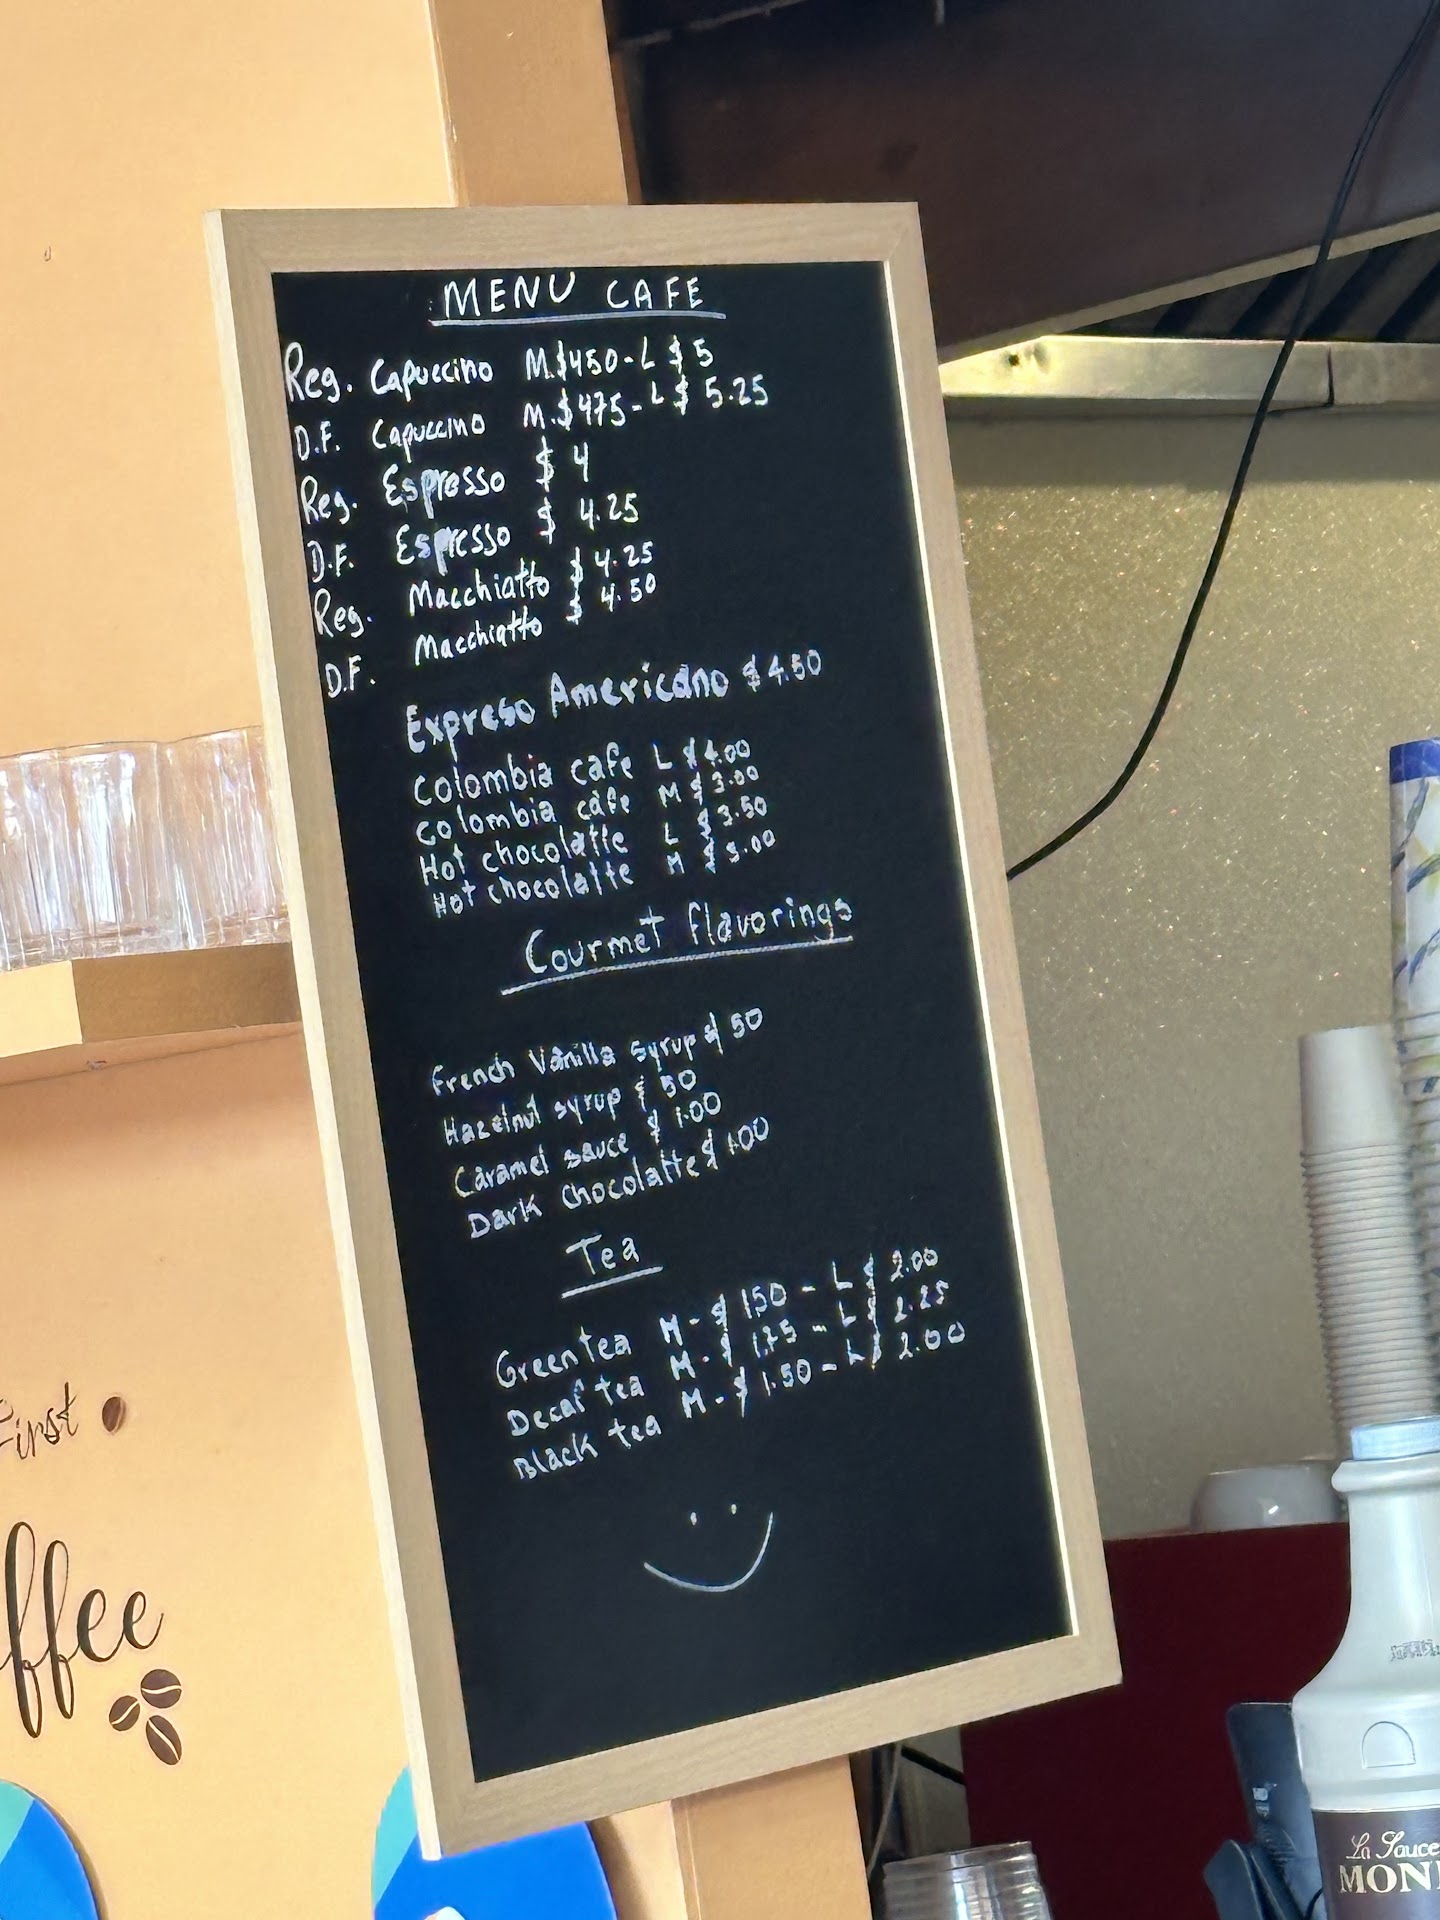 MENU CAFE
Reg. Capuccino M.$450-L $5
D.F. Capuccino M.$475-L$ 5.25
Reg. Espresso $ 4
D.F. Espresso $ 4.25
Reg. Macchiatto $ 4.25
D.F. Macchiatto $ 4.50
Expreso Americano $4.50
Colombia cafe L $4.00
Colombia cafe M $3.00
Hot chocolatte L $3.50
Hot chocolatte M $3.00
Gourmet flavorings
French Vanilla syrup $ 50
Hazelnut syrup $ 50
Caramel sauce $ 1.00
Dark chocolatte $ 1.00
Tea
Green tea M-$ 1.50 - L $ 2.00
Decaf tea M-$ 1.75 - L $ 2.25
Black tea M-$ 1.50 - L $ 2.00
First
ffee
La Sauce
MONI